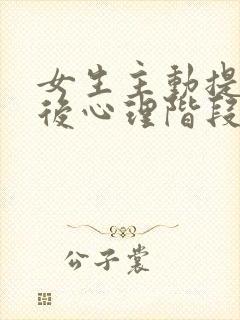 女生主動提
後心理階段
公子裳